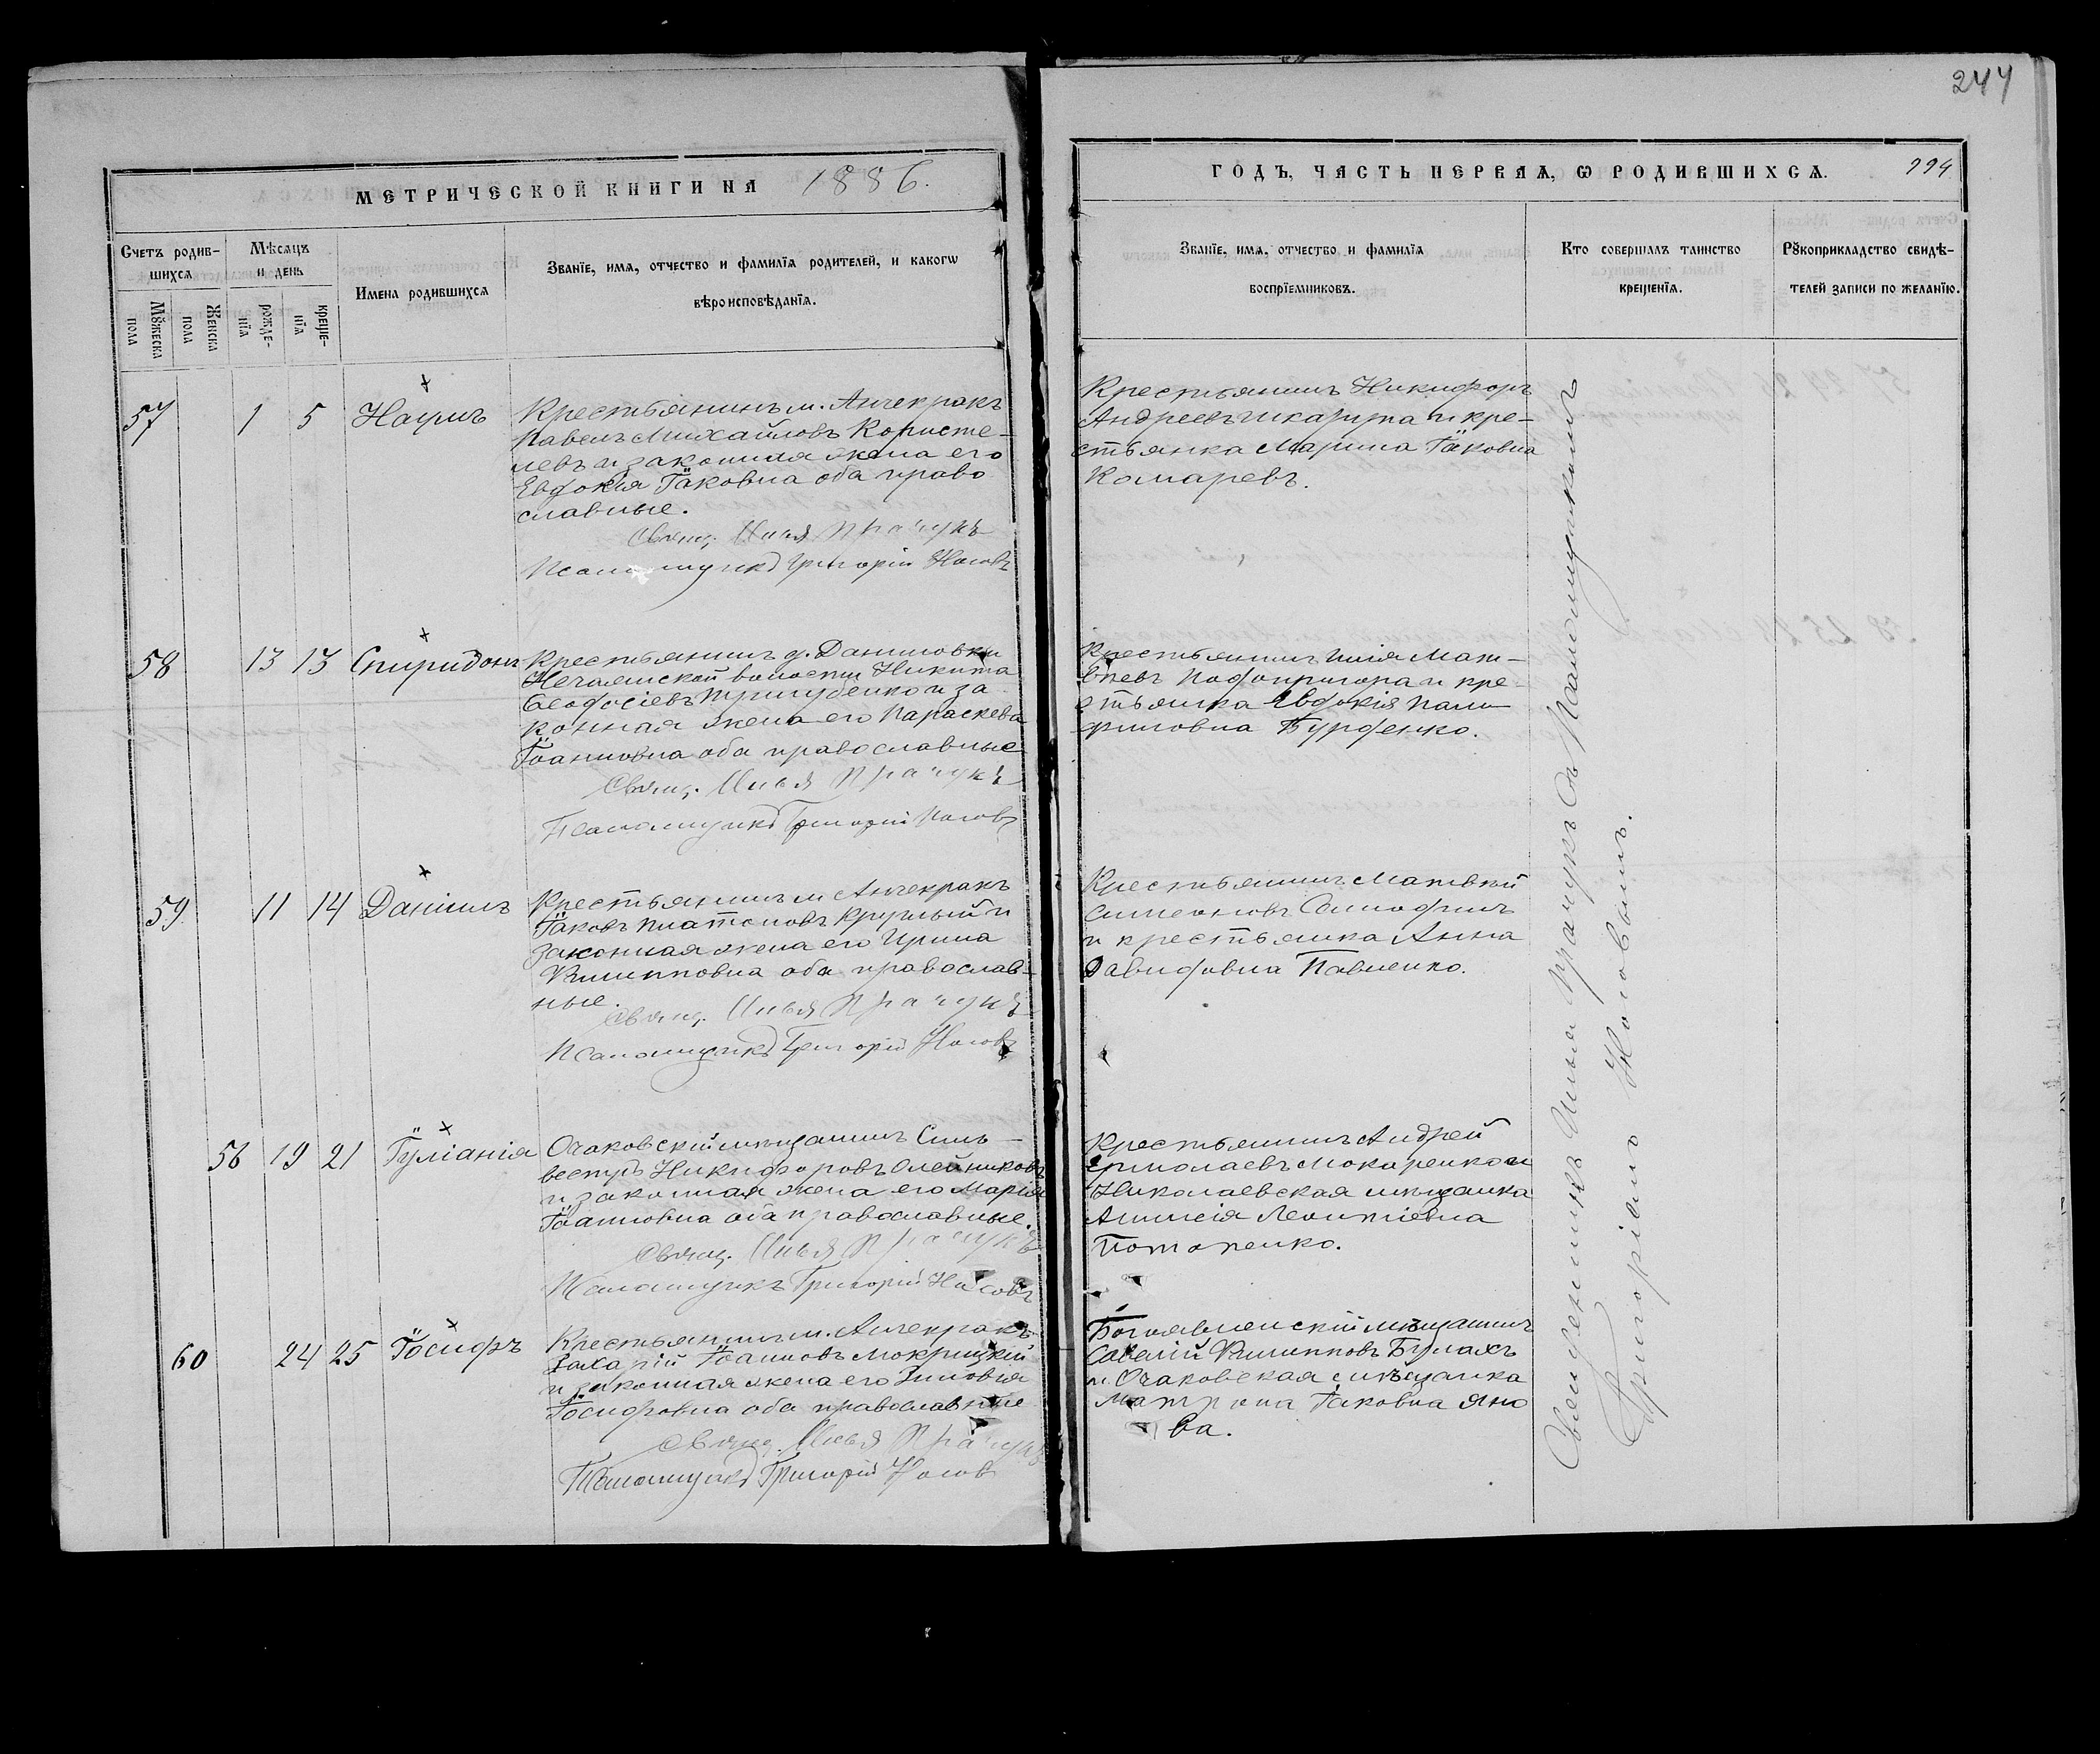 244
МЕТРИЧЕСКОЙ КНИГИ НА 1886.
ГОДЪ, ЧАСТЬ ПЕРВАѦ, Ѡ РОДИВШИХСѦ. 994
Счетъ родив-
шихсѧ
Мѣсѧцъ
и день
Мꙋжеска
пола
Женска
пола
рожде-
нїѧ
креще-
нїѧ
Имена родившихсѧ
Званїе, имѧ, отчество и фамилїѧ родителей, и какогѡ
вѣроисповѣданїѧ.
Званїе, имѧ, отчество и фамилїѧ
воспрїемниковъ.
Кто совершалъ таинство
крещенїѧ.
Рꙋкоприкладство свидѣ-
телей записи по желанїю.
57 1 5 Наумъ
Крестьянинъ м. Анчекракъ
Павелъ Михайловъ Користе-
левъ и законная жена его
Евдокія Іаковна оба право
славные.
Свящ. Илья Прачукъ
Псаломщикъ Григорій Носовъ
Крестьянинъ Никифоръ
Андреевъ Шкарупа и кре-
стьянка Марина Іаковна
Комаревъ.
58 13 13 Спиридонъ
Крестьянинъ д. Даниловки
Нечаянской волости Никита
Ѳеодосіевъ Тригубенко и за
конная жена его Параскева
Іоанновна оба православные
Свящ. Илья Прачукъ
Псаломщикъ Григорій Носовъ
Крестьянинъ Илія Мат-
вѣевъ Подопригора и кре-
стьянка Евдокія Пам-
филовна Бурденко.
59 11 14 Даніилъ
Крестьянинъ м Анчекракъ
Іаковъ Платоновъ Круглый и
законная жена его Ирина
Филипповна оба православ-
ные.
Свящ. Илья Прачукъ
Псаломщикъ Григорій Носовъ
Крестьянинъ Матвѣй
Симеоновъ
и крестьянка Анна
Давидовна Павленко.
56 19 21 Іуліанія
Очаковскій мѣщанинъ Силь-
вестръ Никифоровъ Олейниковъ
и законная жена его Марія
Іоанновна оба православные.
Свящ. Илья Прачукъ
Псаломщикъ Григорій Носовъ
Крестьянинъ Андрей
Ермолаевъ Мокаренко и
Николаевская мѣщанка
Анисія Леонтіевна
Потапенко.
60 24 25 Іосифъ
Крестьянинъ м. Анчекракъ
Захарій Іоанновъ Мокрицкій
и законная жена его Зиновія
Іосифовна оба православные
Свящ. Илья Прачукъ
Псаломщикъ Григорій Носовъ
Богоявленскій мѣщанинъ
Савелій Филипповъ Булахъ
и Очаковская мѣщанка
Матрона Іаковна Яно
ва.
Священникъ Илья Прачукъ съ Псаломщикомъ
Григоріемъ Носовымъ.